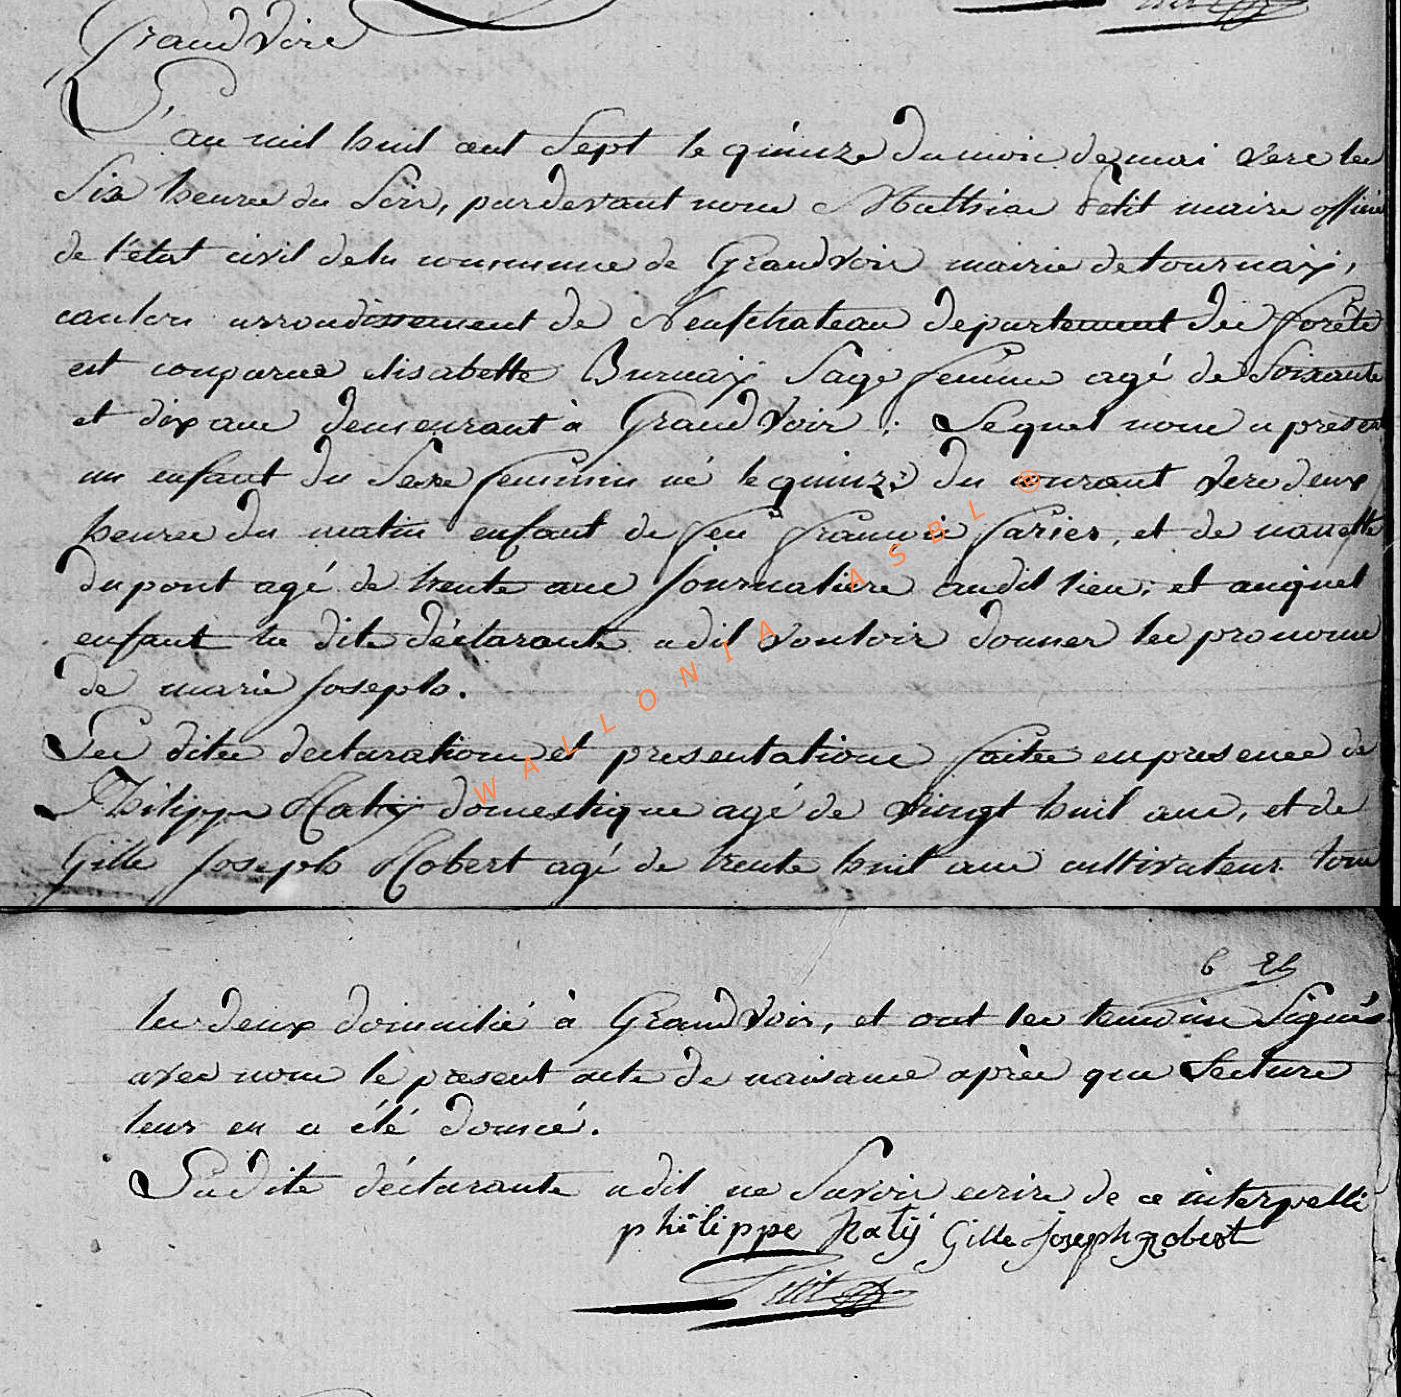 GrandVoir
L'an mil huil cent Sept le quinze du mois de mai vers les
Six heures du Soir, pardevant nous Mathias Petit maire officier
de l'état civil de la commune de GrandVoir mairie de tournay,
canton arrondissement de Neufchateau departement des forêts
est comparue elisabette Burnay Sage femme agé de Soixante
et dix ans demeurant à GrandVoir ; Lequel nous a présenté
un enfant du Sexe feminin né le quinze du courant vers deux
heures du matin enfant de feu francois et de nanette
dupont agé de trente ans journaliere audit lieu; et auquel
enfant la dite déclarante a dit vouloir donner les pronoms
de marie joseph.
Les dites declarations et presentations faites en presence de
Philippe domestique agé de vingt huil ans, et de
Gille joseph Robert agé de trente huil ans cultivateur tous
6 21
les deux domicilié à GrandVoir, et ont les temoins Signés
avec nous le present acte de naisance après que Lecture
leur en a été donné.
Ladite déclarante a dit ne Savoir ecrire de ce interpellé
philippe Gille joseph robert
Petit
WALLONIA ASBL ®